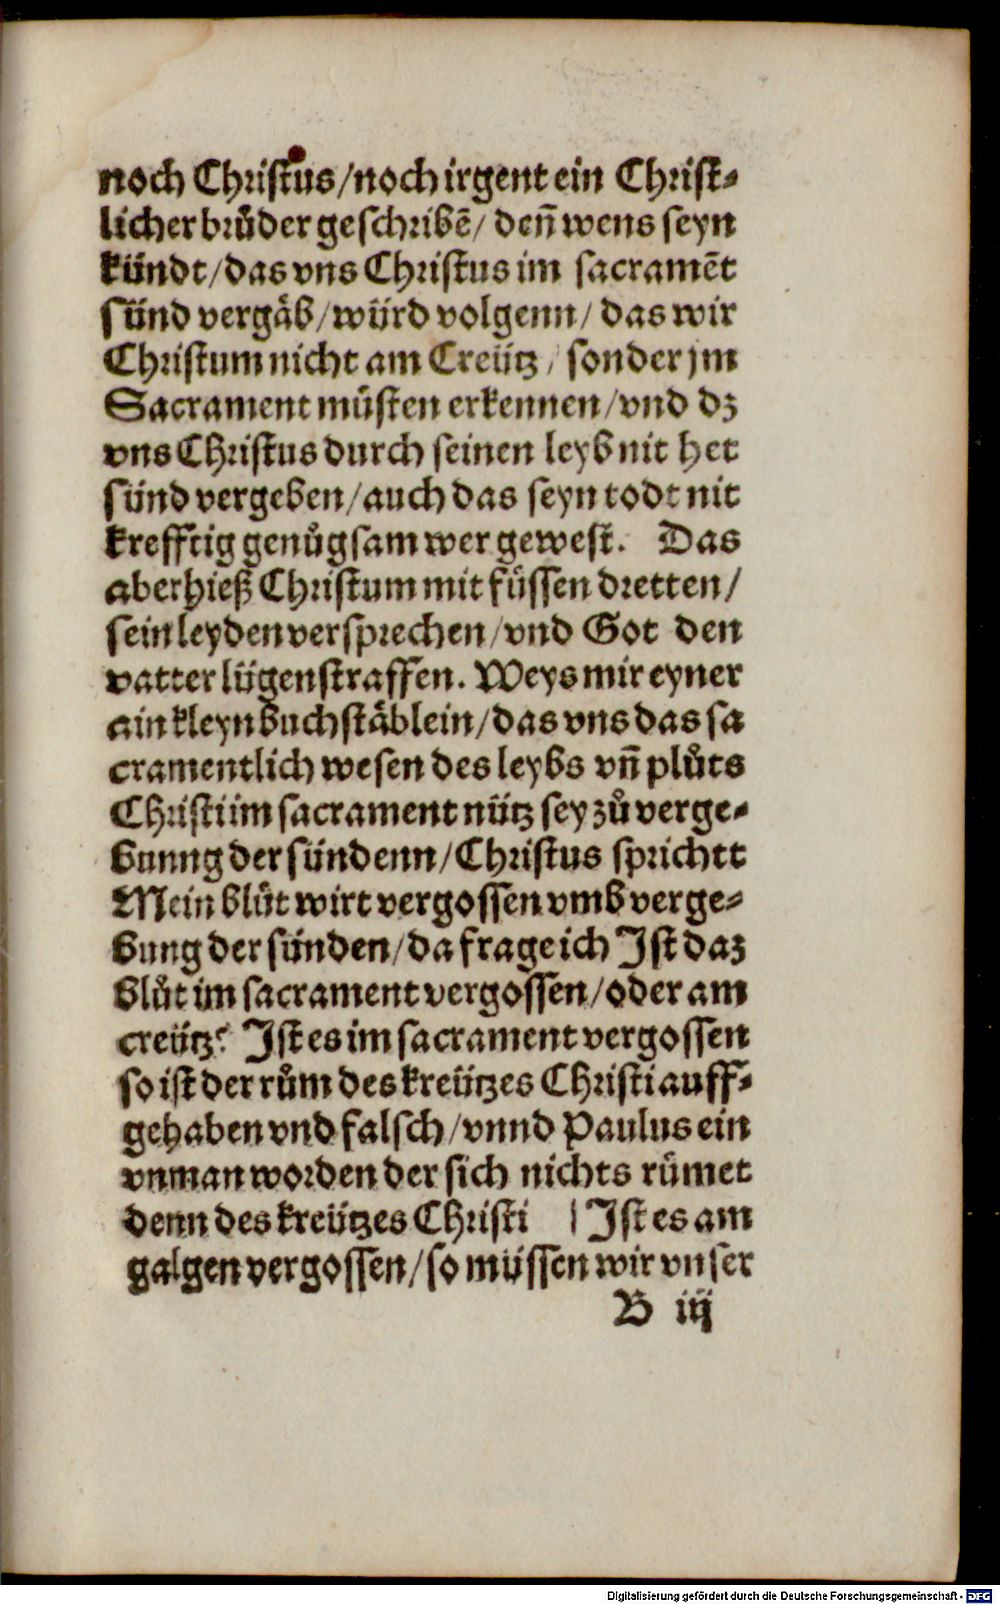 noch Christus/noch irgent ein Christ-
licher bruͦder geschribē/ deñ wens seyn
kündt/das vns Christus im sacramēt
sünd vergäb/würd volgenn/ das wir
Christum nicht am Creütz/ sonder jm
Sacrament müsten erkennen/vnd dz
vns Christus durch seinen leyb nit het
sünd vergeben/auch das seyn todt nit
krefftig genuͦgsam wer gewest. Das
aber hieß Christum mit füssen dretten/
sein leyden versprechen/vnd Got den
vatter lügenstraffen. Weys mir eyner
ain kleyn buchstäblein/das vns das sa
cramentlich wesen des leybs vñ pluͦts
Christi im sacrament nütz sey zuͦ verge-
bunng der sündenn/Christus sprichtt
Mein bluͦt wirt vergossen vmb verge-
bung der sünden/da frage ich Ist daz
bluͦt im sacrament vergossen/oder am
creütz? Ist es im sacrament vergossen
so ist der ruͦm des kreützes Christi auff-
gehaben vnd falsch/vnnd Paulus ein
vnman worden der sich nichts rümet
denn des kreützes Christi | Ist es am
galgen vergossen/so müssen wir vnser
B iij
Digitalisierung gefördert durch die Deutsche Forschungsgemeinschaft - DFG